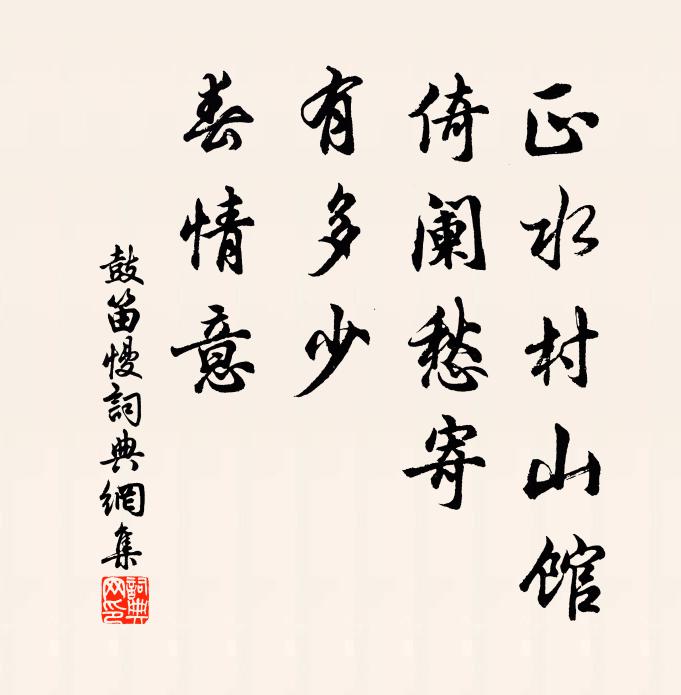 正水村山館
倚闌愁寄
有多少
春情意
鼓笛慢詞典網集
詞典网印